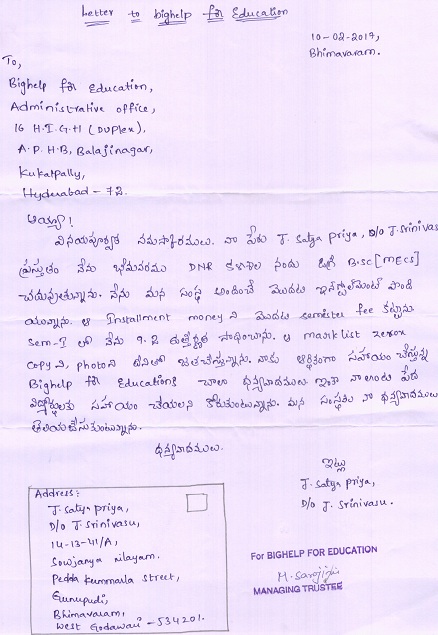 Letter to bighelp for Education
10-02-2017,
Bhimavaram.
To,
Bighelp for Education,
Administrative office,
16 H.I.G.H (Duplex),
A.P.H.B, Balajinagar,
Kukatpally,
Hyderabad - 72.
అయ్యా!
వినయపూర్వక నమస్కారములు. నా పేరు J. Satya Priya, D/o J. Srinivas
ప్రస్తుతం నేను భీమవరము DNR కళాశాల నందు డిగ్రీ B.SC [MECS]
చదువుతున్నాను. నేను మన సంస్థ అందించే మొదట ఇన్‌స్టాల్‌మెంట్ పొంది
యున్నాను. ఆ Installment money ని మొదట semister fee కట్టాను
Sem-I లో నేను 9.2 ఉత్తీర్ణత సాధించాను. ఆ mark list zerox
copy ని, photo ని దీనితో జతచేస్తున్నాను. నాకు ఆర్థికంగా సహాయం చేస్తున్న
Bighelp for Education కి చాలా ధన్యవాదములు ఇంకా నాలాంటి పేద
విద్యార్థులకు సహాయం చేయలని కోరుకుంటున్నాను. మన సంస్థకు నా ధన్యవాదములు
తెలియజేసుకుంటున్నాను.
ధన్యవాదములు.
ఇట్లు
J. Satya Priya,
D/o J. Srinivasu.
Address:
J. Satya Priya,
D/o J. Srinivasu,
14-13-41/A,
Sowjanya nilayam.
Pedda kummarla street,
Gunupudi,
Bhimavaram,
West Godavari - 534201.
For BIGHELP FOR EDUCATION
M. Sarojini
MANAGING TRUSTEE